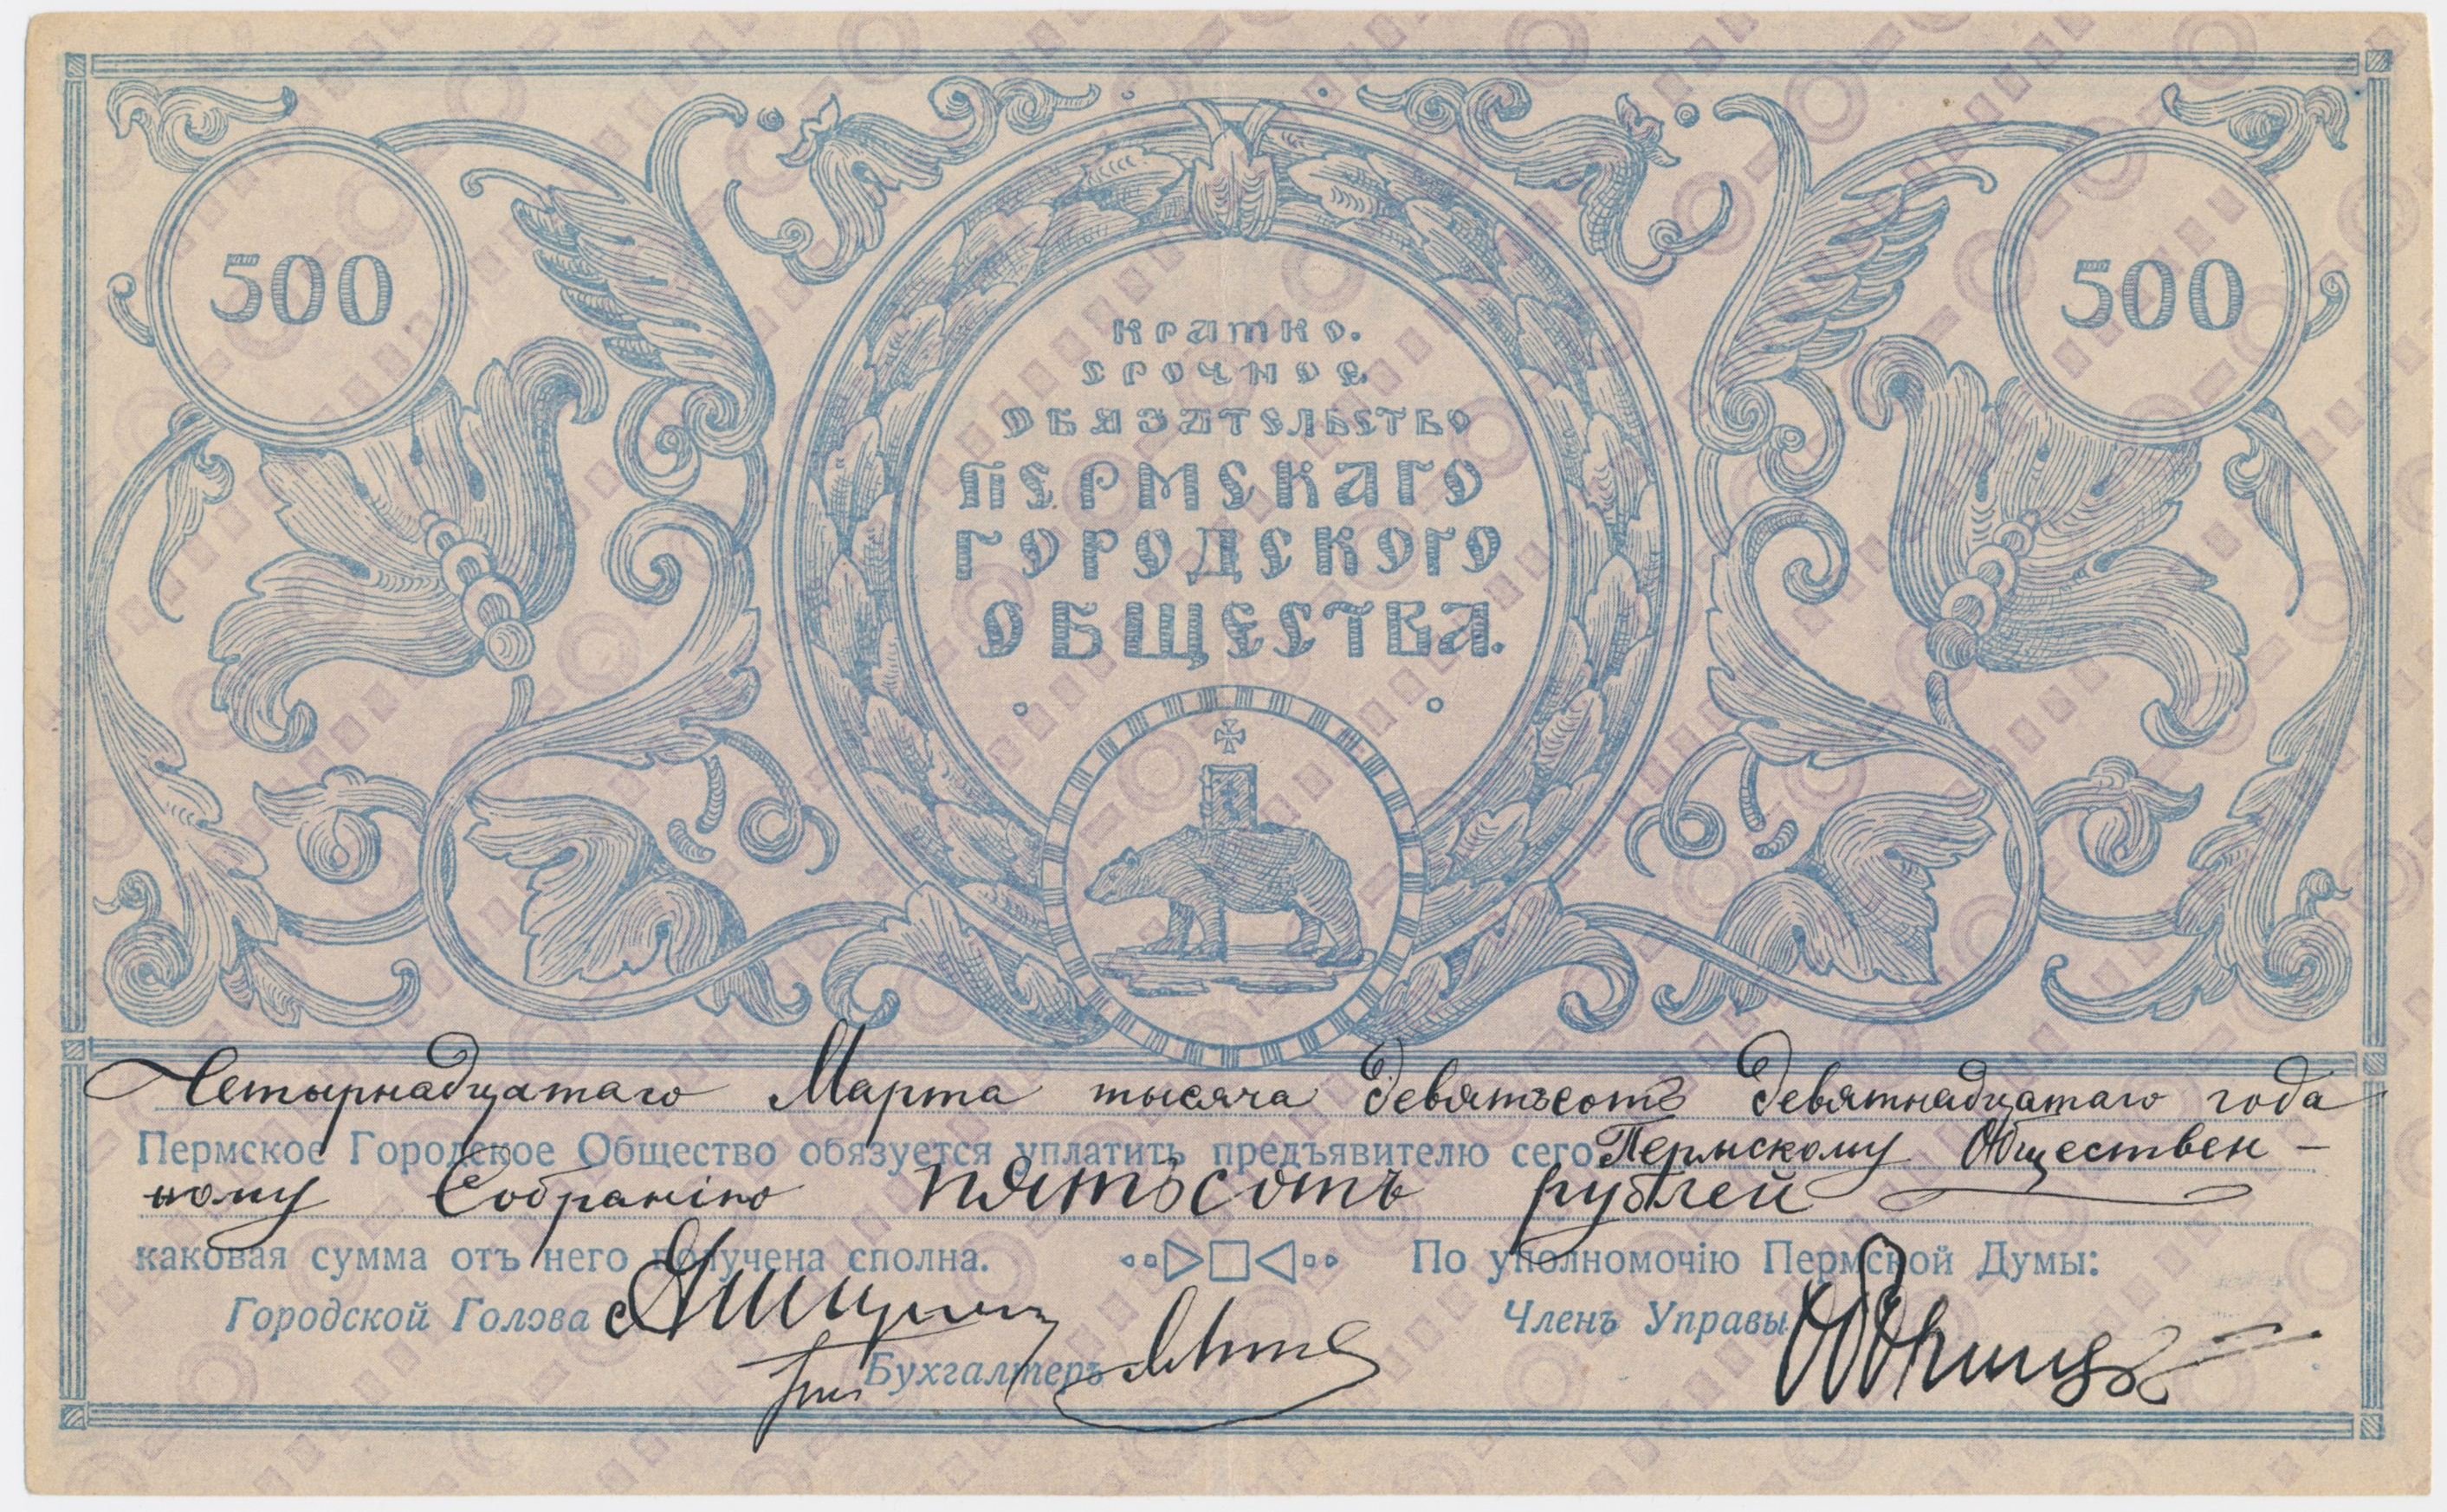 500
500
КРАТКО-
СРОЧНОЕ
ОБЯЗАТЕЛЬСТВО
ПЕРМСКАГО
ГОРОДСКОГО
ОБЩЕСТВА.
Четырнадцатаго Марта тысяча девятьсотъ девятнадцатаго года
Пермское Городское Общество обязуется уплатить предъявителю сего Пермскому Обществен-
ному Собранію пятьсотъ рублей
каковая сумма отъ него получена сполна. По уполномочію Пермской Думы:
Городской Голова Членъ Управы
Бухгалтеръ